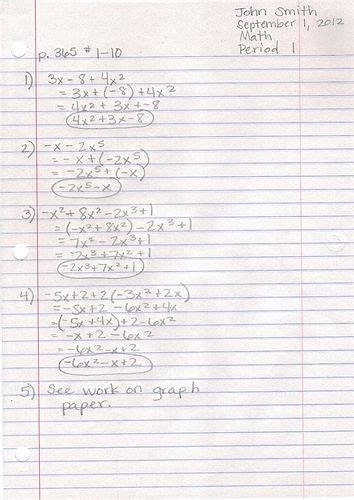 John Smith
September 1, 2012
Math
Period 1
p. 365 # 1-10
1) 3x - 8 + 4x²
= 3x + (-8) + 4x²
= 4x² + 3x + -8
4x² + 3x - 8
2) -x - 2x⁵
= -x + (-2x⁵)
= -2x⁵ + (-x)
-2x⁵ - x
3) -x² + 8x² - 2x³ + 1
= (-x² + 8x²) - 2x³ + 1
= 7x² - 2x³ + 1
= -2x³ + 7x² + 1
-2x³ + 7x² + 1
4) -5x + 2 + 2(-3x² + 2x)
= -5x + 2 - 6x² + 4x
= (-5x + 4x) + 2 - 6x²
= -x + 2 - 6x²
= -6x² - x + 2
-6x² - x + 2
5) See work on graph
paper.